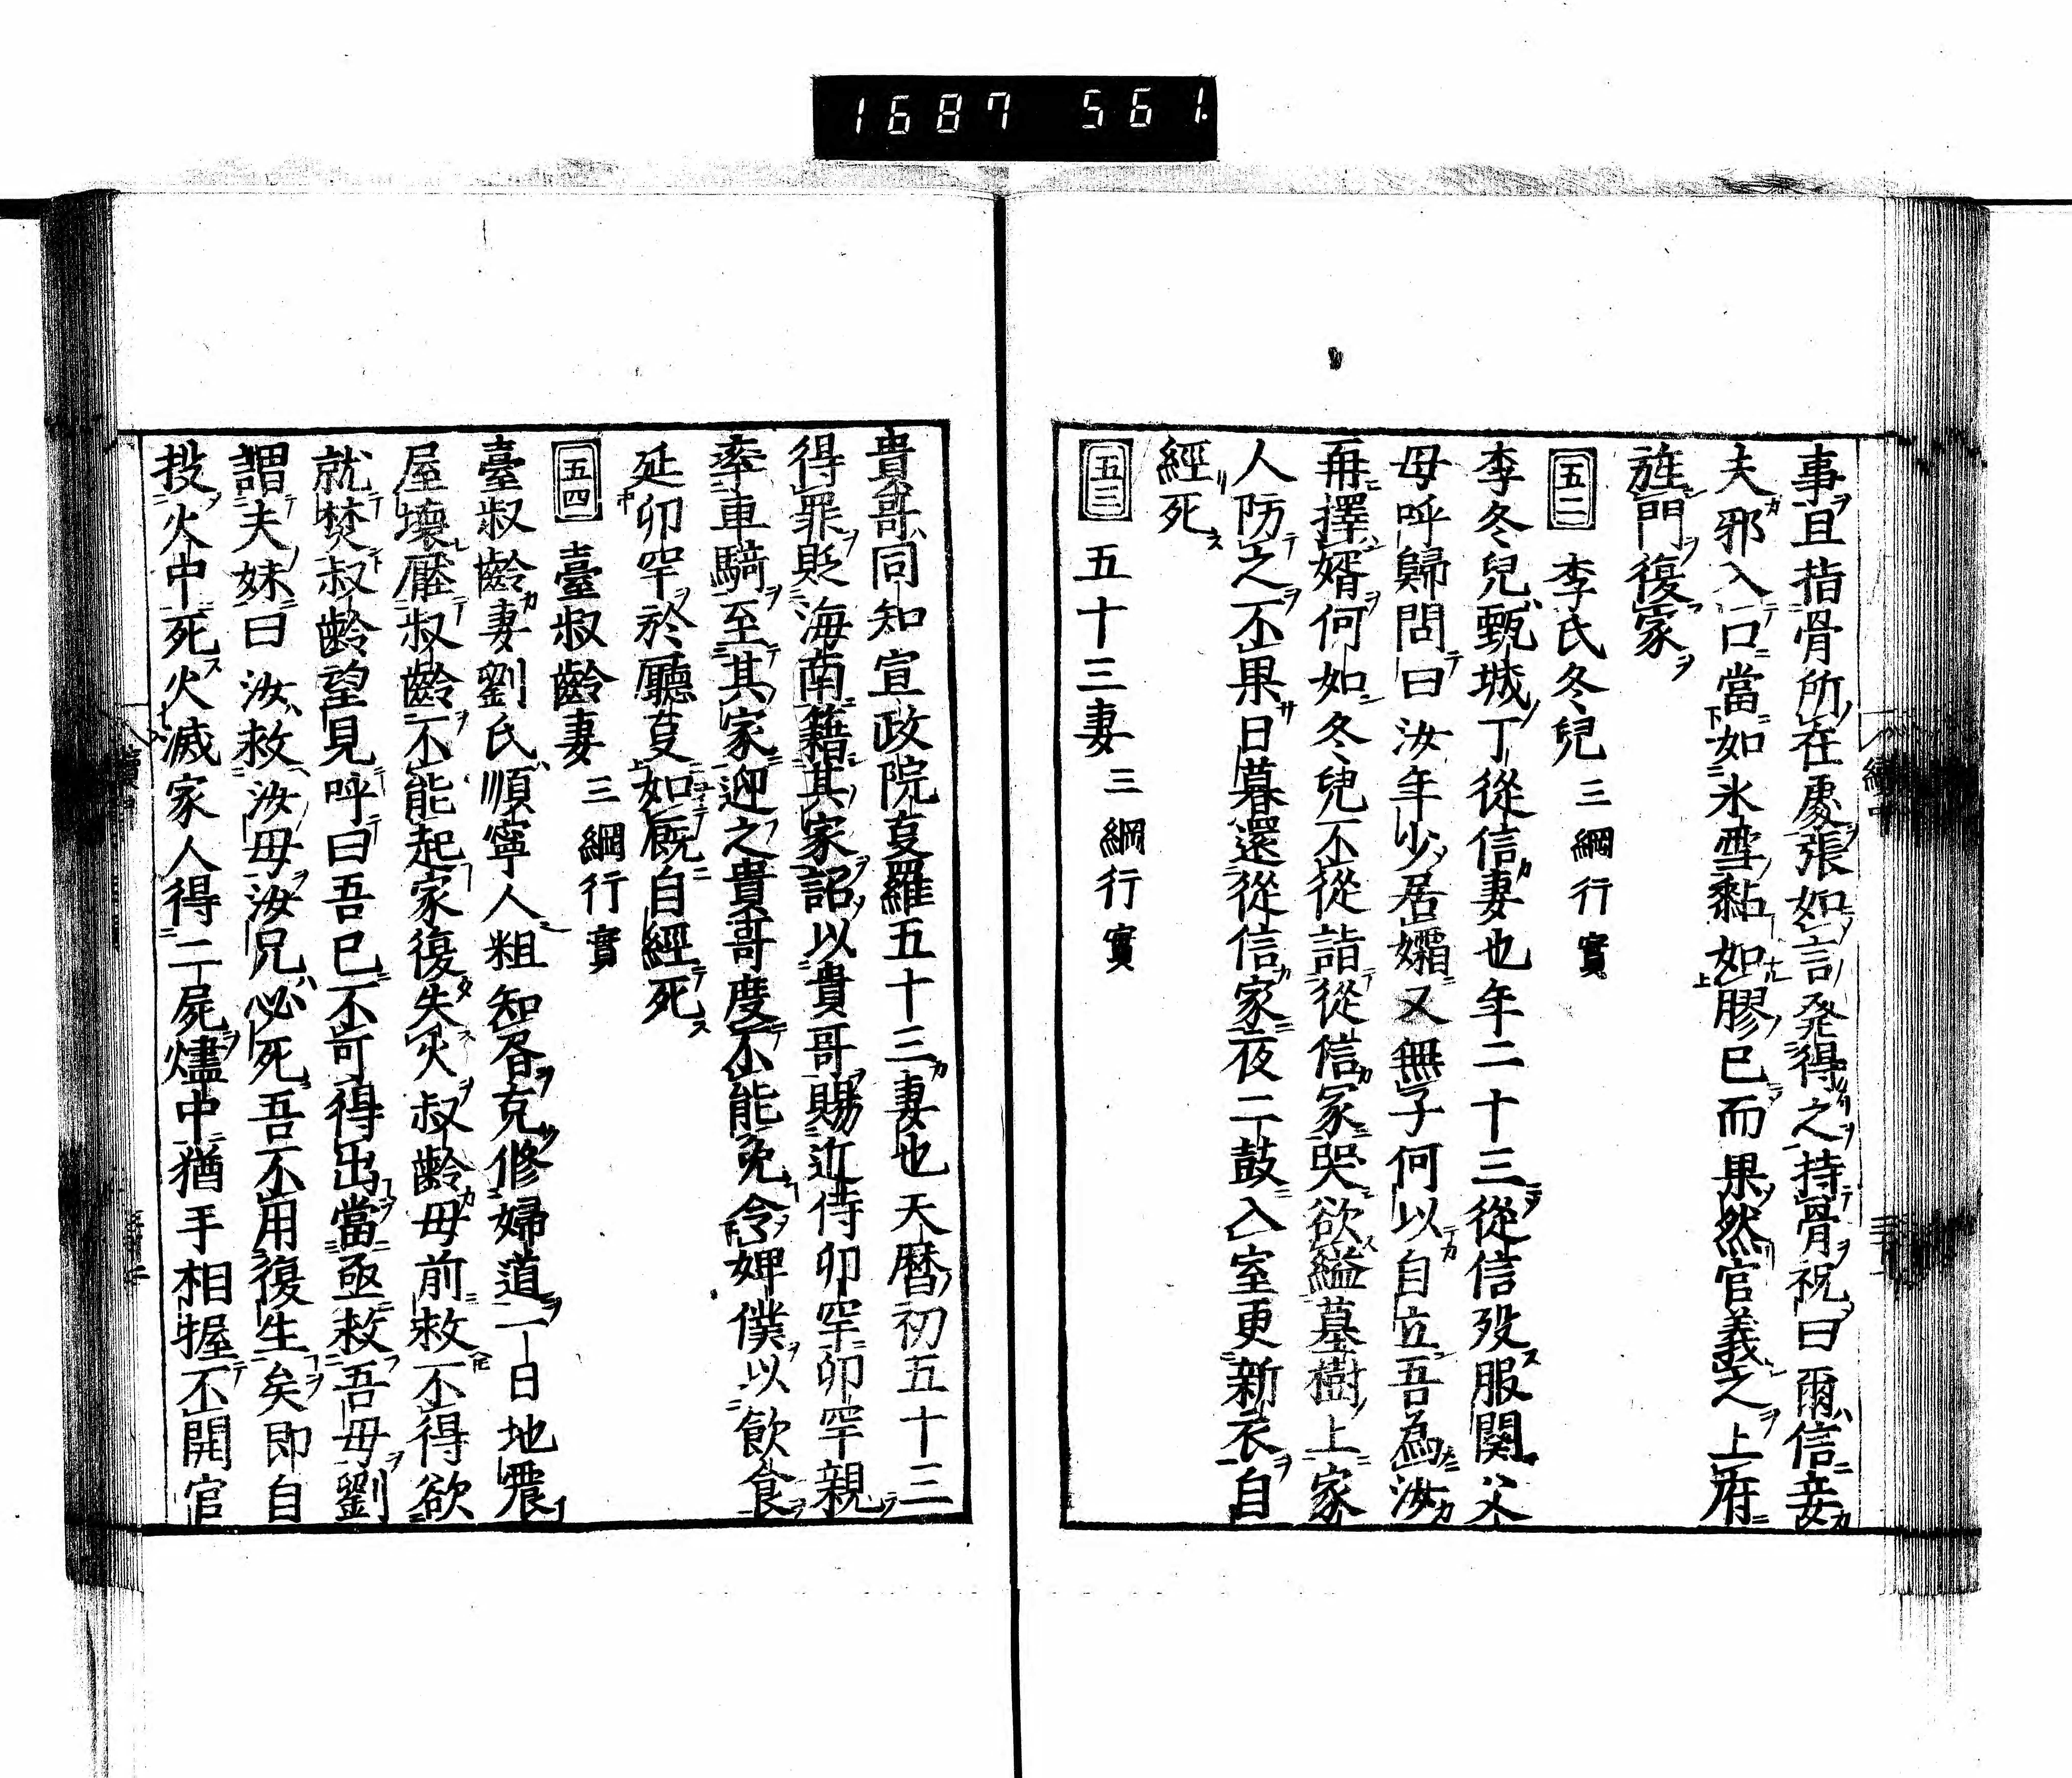 1687 561.
事且指骨所在處張如言発得之持骨祝曰爾信妾
夫邪入口當如氷雪黏如膠已而果然官義之上府
旌門復家
五二 李氏冬兒 三綱行實
李冬兒甄城丁從信妻也年二十三從信歿服闋父
母呼歸問曰汝年少居孀又無子何以自立吾為汝
再擇婿何如冬兒不從詣從信冢哭欲縊墓樹上家
人防之不果日暮還從信家夜二鼓入室更新衣自
經死
五三 五十三妻 三綱行實
貴哥同知宣政院叓羅五十三妻也天暦初五十三
得罪貶海南籍其家詔以貴哥賜近侍卯罕卯罕親
率車騎至其家迎之貴哥度不能免令婢僕以飲食
延卯罕於廳叓如厩自經死
五四 臺叔齡妻 三綱行實
臺叔齡妻劉氏順寧人粗知各克修婦道一日地震
屋壞壓叔齡不能起家復失火叔齡母前救不得欲
就焚叔齡望見呼曰吾已不可得出當亟救吾母劉
謂夫妹曰汝救汝母汝兄必死吾不用復生矣即自
投火中死火滅家人得二屍燼中猶手相握不開官